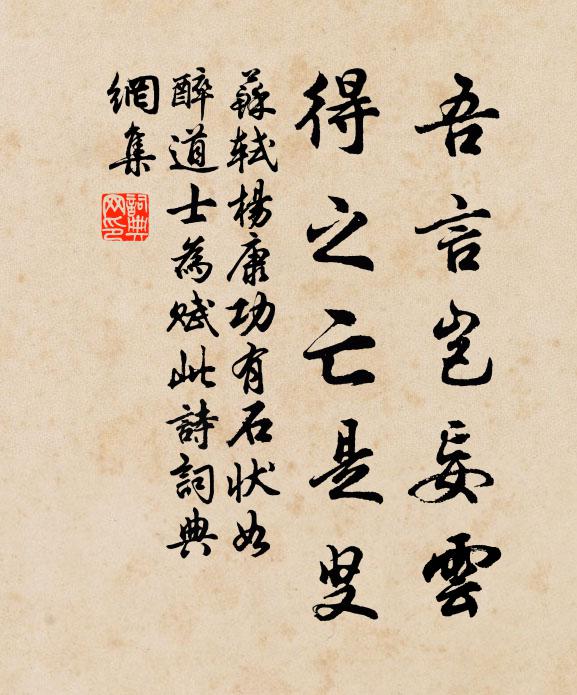 吾言豈妄雲
得之亡是叟
蘇軾楊康功有石狀如
醉道士為賦此詩詞典
網集
詞典
网印